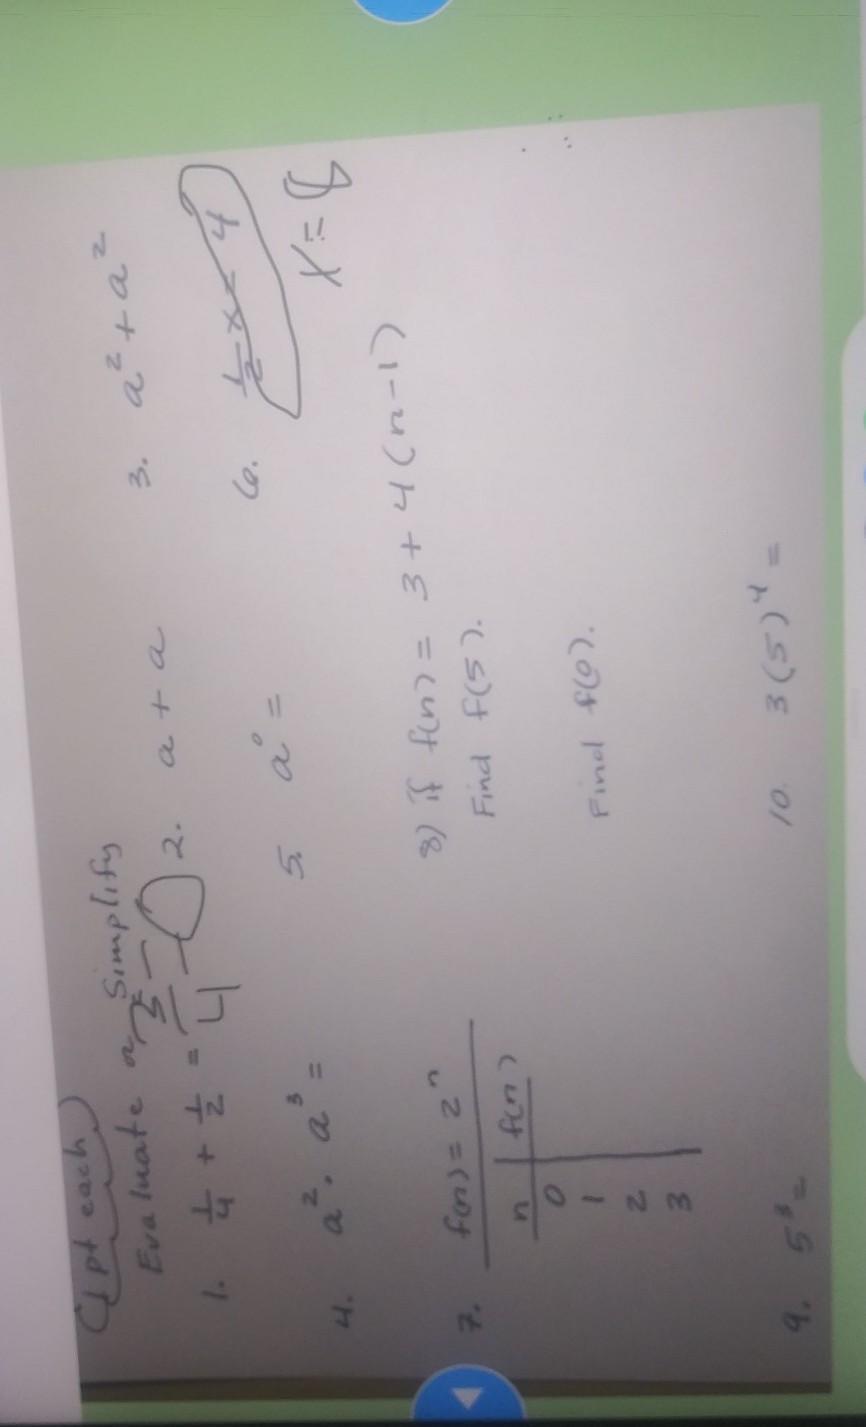 (1 pt each)
Evaluate or Simplify
1. 1/4 + 1/2 = 3/4
2. a + a
3. a² + a²
4. a² · a³ =
5. a⁰ =
6. 1/2 x = 4
x = 8
7. f(n) = 2ⁿ
n f(n)
0
1
2
3
8) If f(n) = 3 + 4(n-1)
Find f(5).
Find f(0).
9. 5³ =
10. 3(5)⁴ =